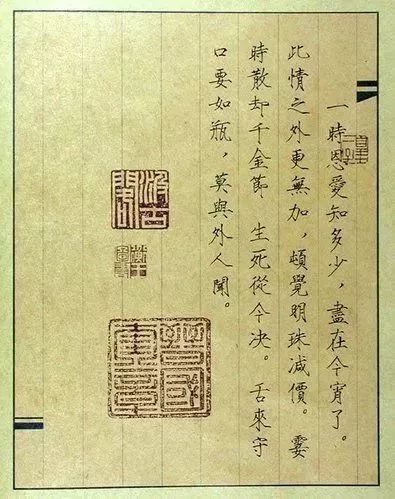 一時恩愛知多少，盡在今宵了。
此情之外更無加，頓覺明珠减價。霎
時散却千金節 生死從今决。舌來守
口要如瓶，莫與外人聞。
汲古閣